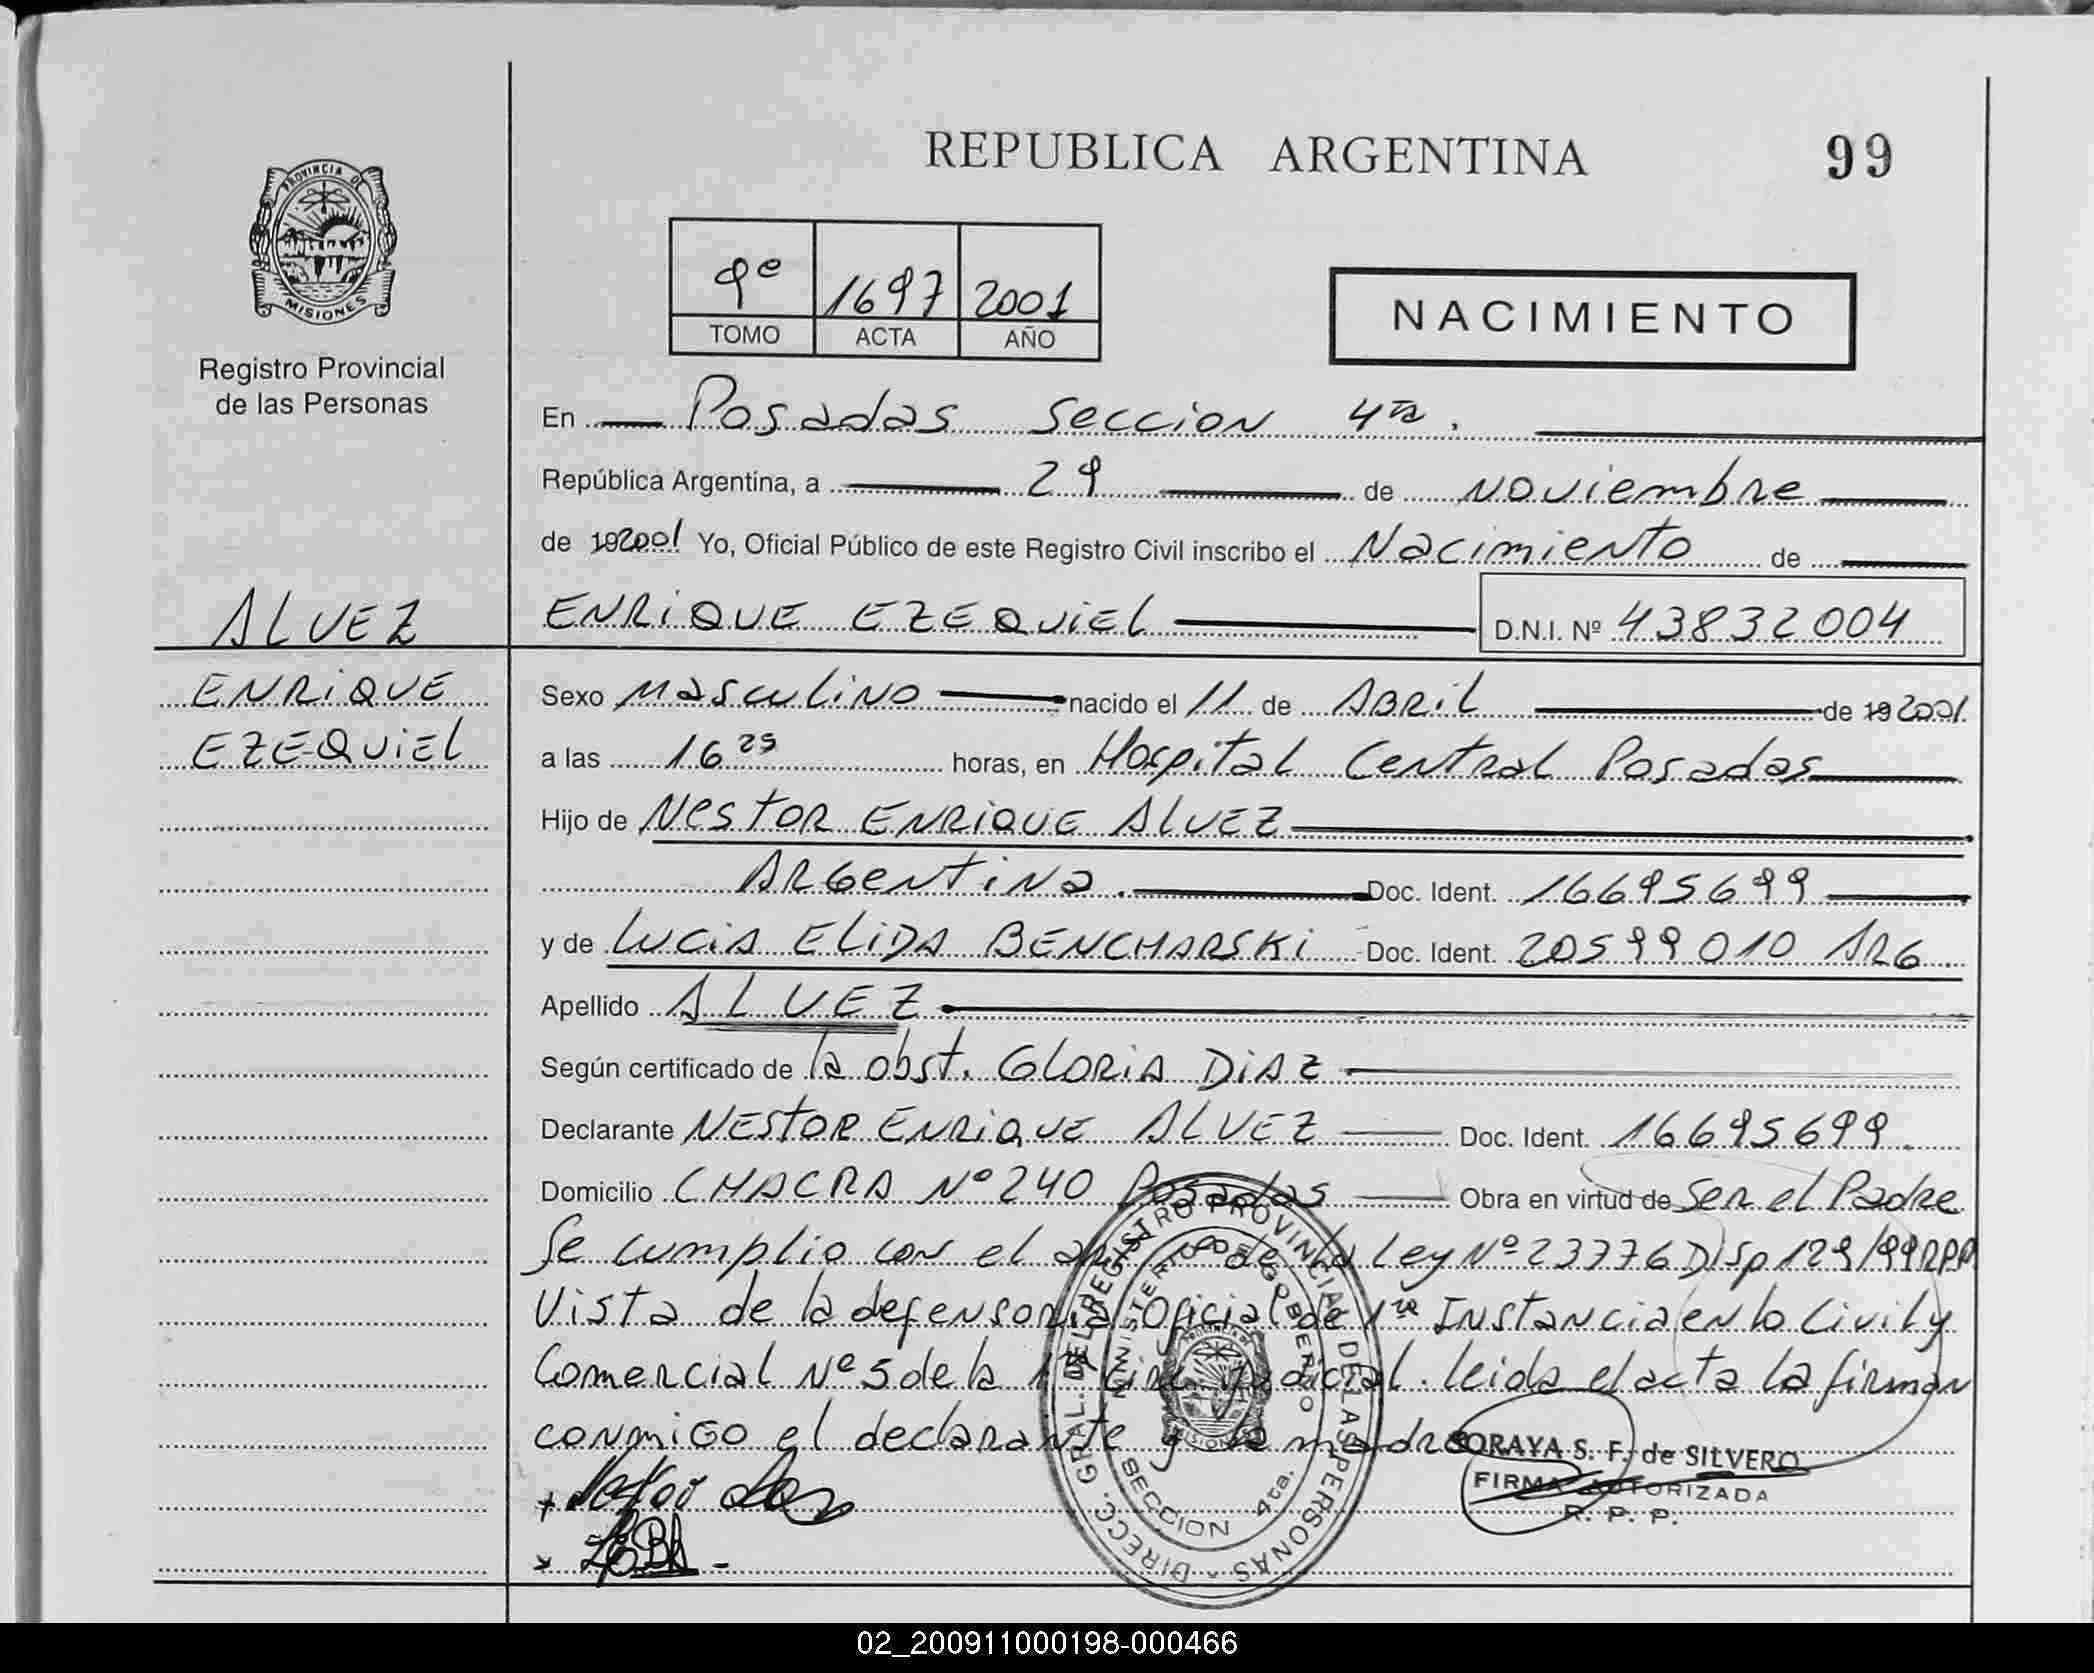 REPUBLICA ARGENTINA
99
PROVINCIA DE
MISIONES
Registro Provincial
de las Personas
9º 1697 2001
TOMO ACTA AÑO
NACIMIENTO
En Posadas Seccion 4ta.
República Argentina, a 29 de Noviembre
de 192001 Yo, Oficial Público de este Registro Civil inscribo el Nacimiento de
ALVEZ
ENRIQUE EZEQUIEL D.N.I. Nº 43832004
ENRIQUE
EZEQUIEL
Sexo Masculino nacido el 11 de ABRIL de 192001.
a las 16 25 horas, en Hospital Central Posadas
Hijo de NESTOR ENRIQUE ALVEZ
ARGENTINA. Doc. Ident. 16695699
y de LUCIA ELIDA BENCHARSKI Doc. Ident. 20599010 ARG
Apellido ALVEZ
Según certificado de la obst. GLORIA DIAZ
Declarante NESTOR ENRIQUE ALVEZ Doc. Ident. 16695699.
Domicilio CHACRA Nº 240 Posadas Obra en virtud de Ser el Padre
Se cumplio con el de la Ley Nº 23776 Disp 129/99 RPP
Vista de la defensoria Oficial de 1ra Instancia en lo Civil y
Comercial Nº 5 de la 1ra Circ Judicial. leida el acta la firman
conmigo el declarante y la madre
SORAYA S. F. de SILVERO
FIRMA AUTORIZADA
R. P. P.
DIRECC. GRAL. DEL REGISTRO PROVINCIAL DE LAS PERSONAS
MINISTERIO DE GOBIERNO
SECCION 4ta.
02_200911000198-000466